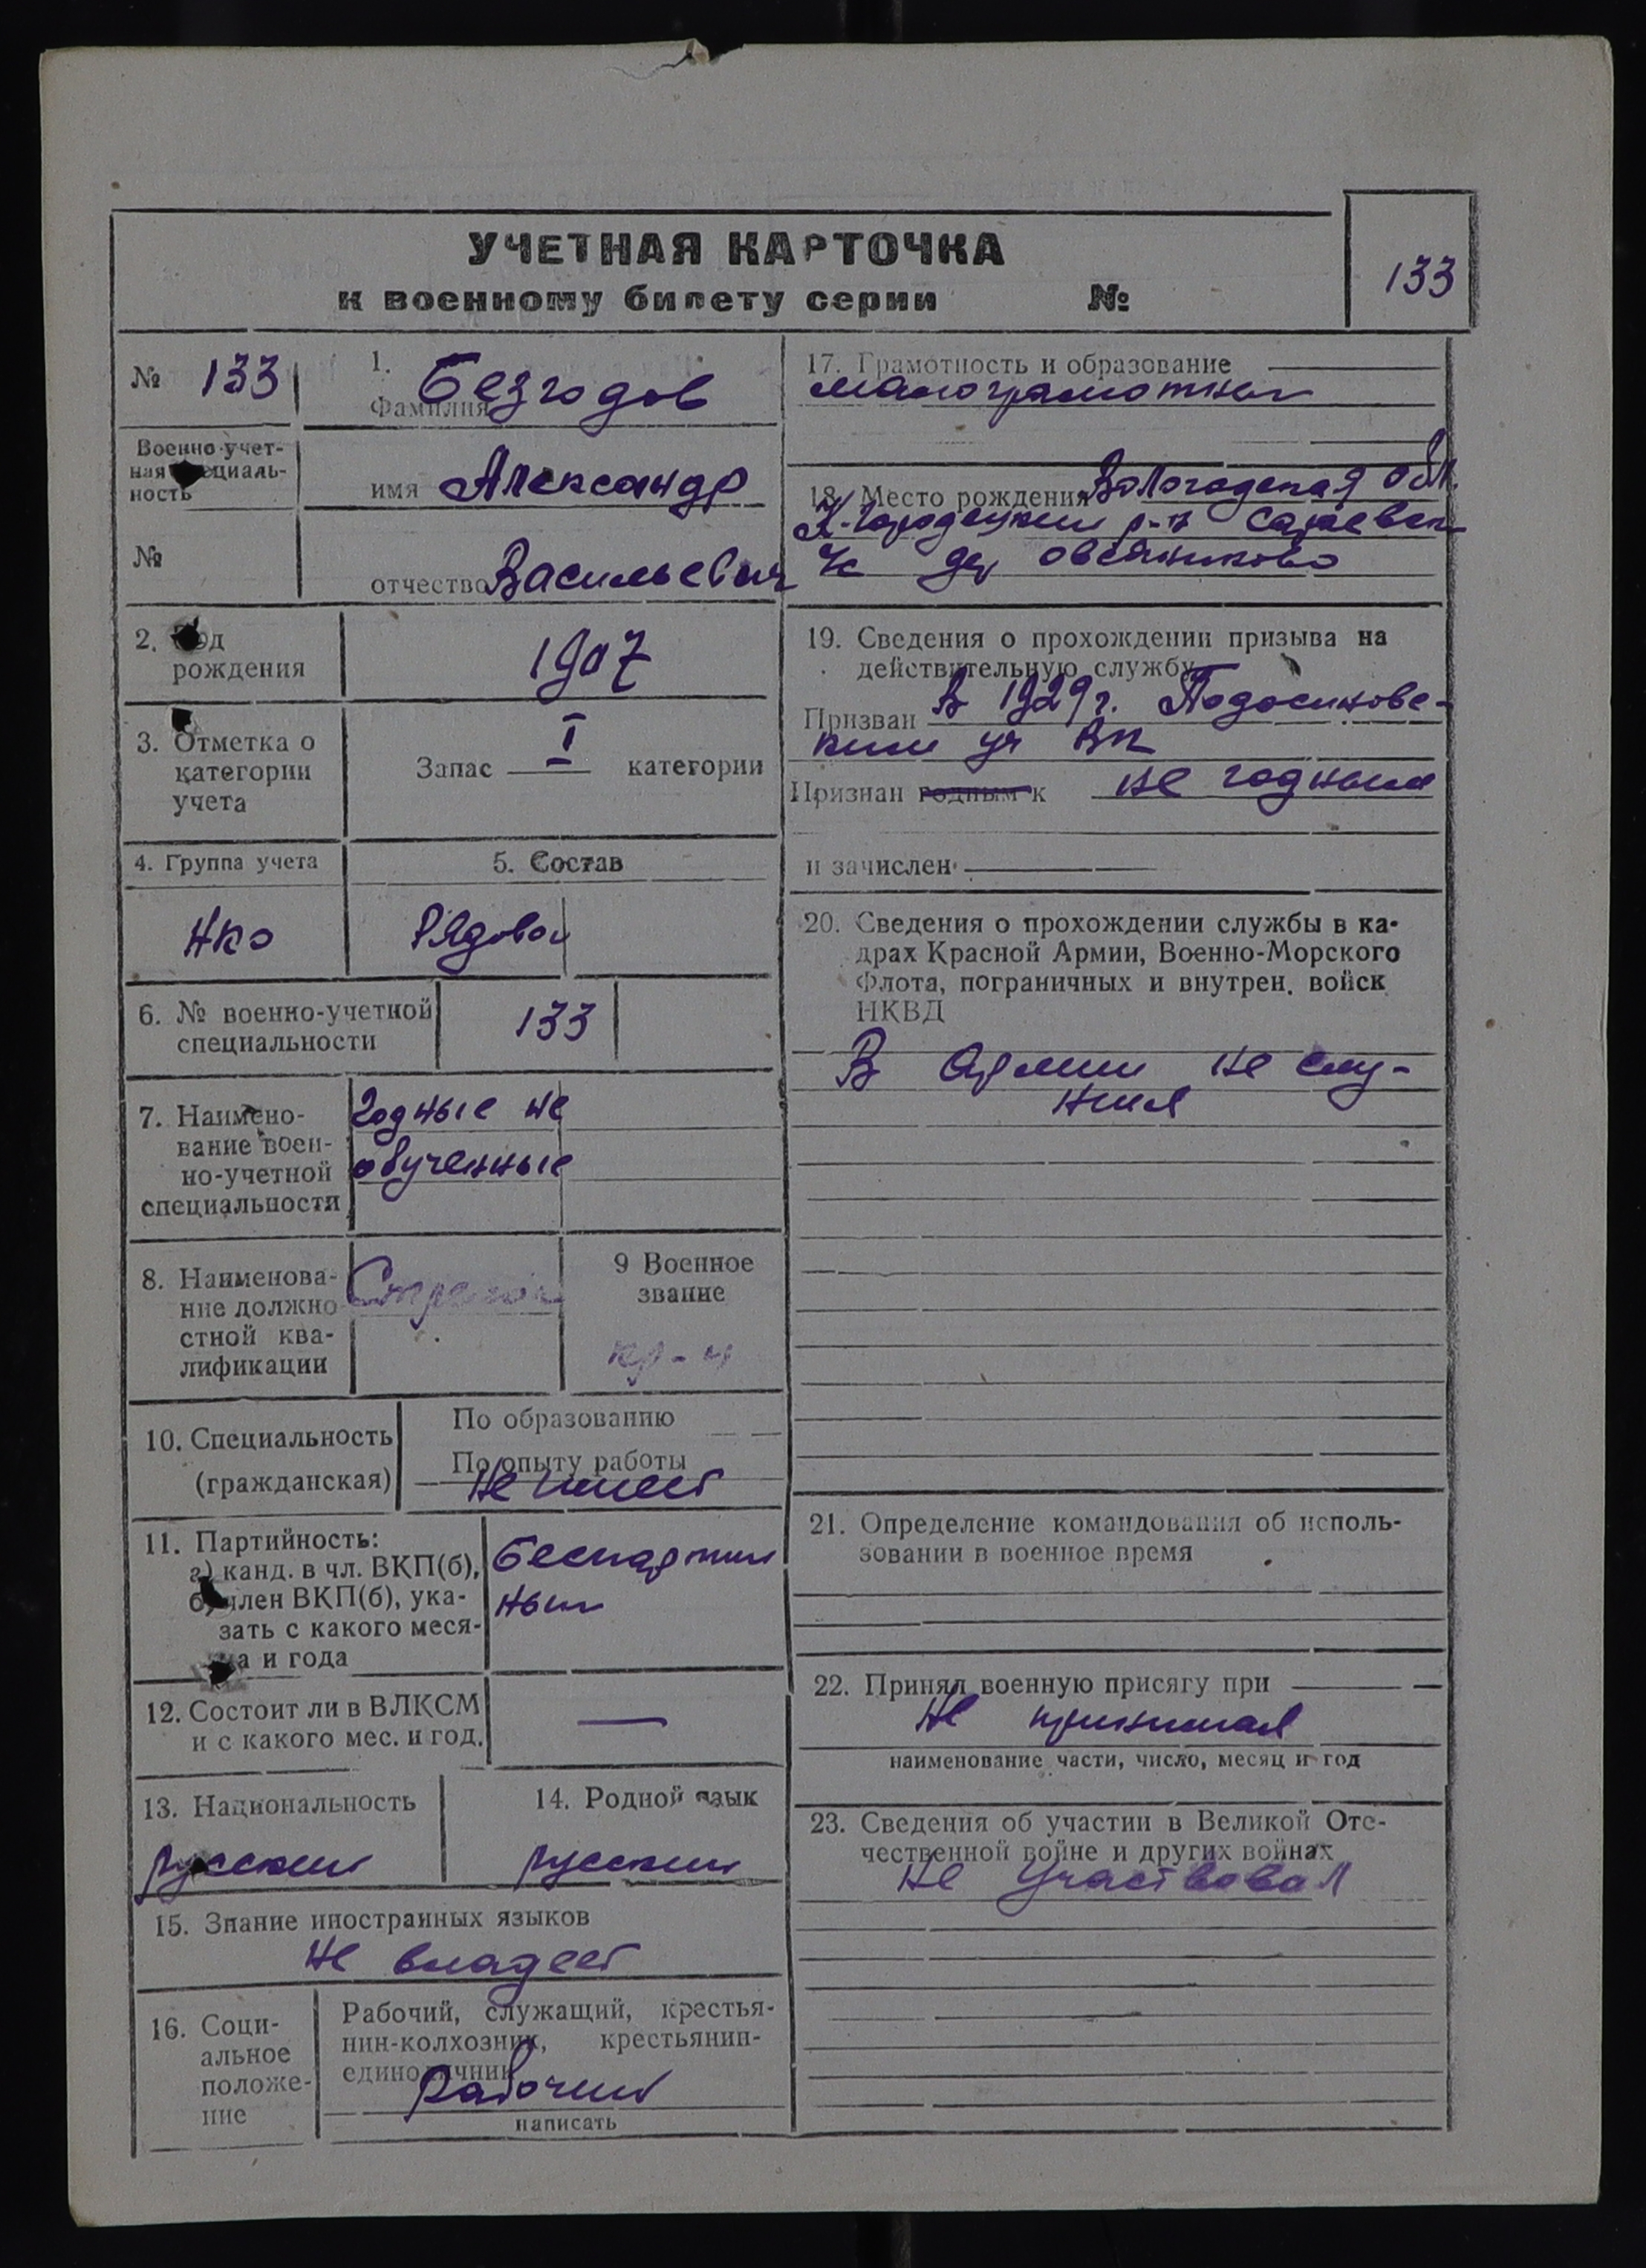 УЧЕТНАЯ КАРТОЧКА
к военному билету серии №
133
№ 133
1. Фамилия Безгодов
Военно-учет-
ная специаль-
ность
имя Александр
№
отчество Васильевич
2. Год
рождения
1907
3. Отметка о
категории
учета
Запас I категории
4. Группа учета
5. Состав
НКО
Рядовой
6. № военно-учетной
специальности
133
7. Наимено-
вание воен-
но-учетной
специальности
Годные не
обученные
8. Наименова-
ние должно
стной ква-
лификации
Стрелок
9 Военное
звание
кр-ц
10. Специальность
(гражданская)
По образованию
По опыту работы
Не имеет
11. Партийность:
а) канд. в чл. ВКП(б),
б) член ВКП(б), ука-
зать с какого меся-
ца и года
Беспартий
ный
12. Состоит ли в ВЛКСМ
и с какого мес. и год.
—
13. Национальность
русский
14. Родной язык
русский
15. Знание иностранных языков
Не владеет
16. Соци-
альное
положе-
ние
Рабочий, служащий, крестья-
нин-колхозник, крестьянин-
единоличник
Рабочий
написать
17. Грамотность и образование
малограмотный
18. Место рождения Вологодская обл.
К-Городецкий р-н
дер Овсянниково
19. Сведения о прохождении призыва на
действительную службу
Призван В 1929 г. Подосинове-
ким РВК
Признан годным к не годным
и зачислен
20. Сведения о прохождении службы в ка-
драх Красной Армии, Военно-Морского
Флота, пограничных и внутрен. войск
НКВД
В Армии не слу-
жил
21. Определение командования об исполь-
зовании в военное время
22. Принял военную присягу при
Не принимал
наименование части, число, месяц и год
23. Сведения об участии в Великой Оте-
чественной войне и других войнах
Не участвовал